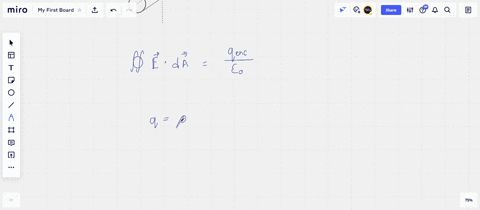 miro My First Board Share
∯ E⃗ · dA⃗ = q_enc / ε₀
q = ρ
75%